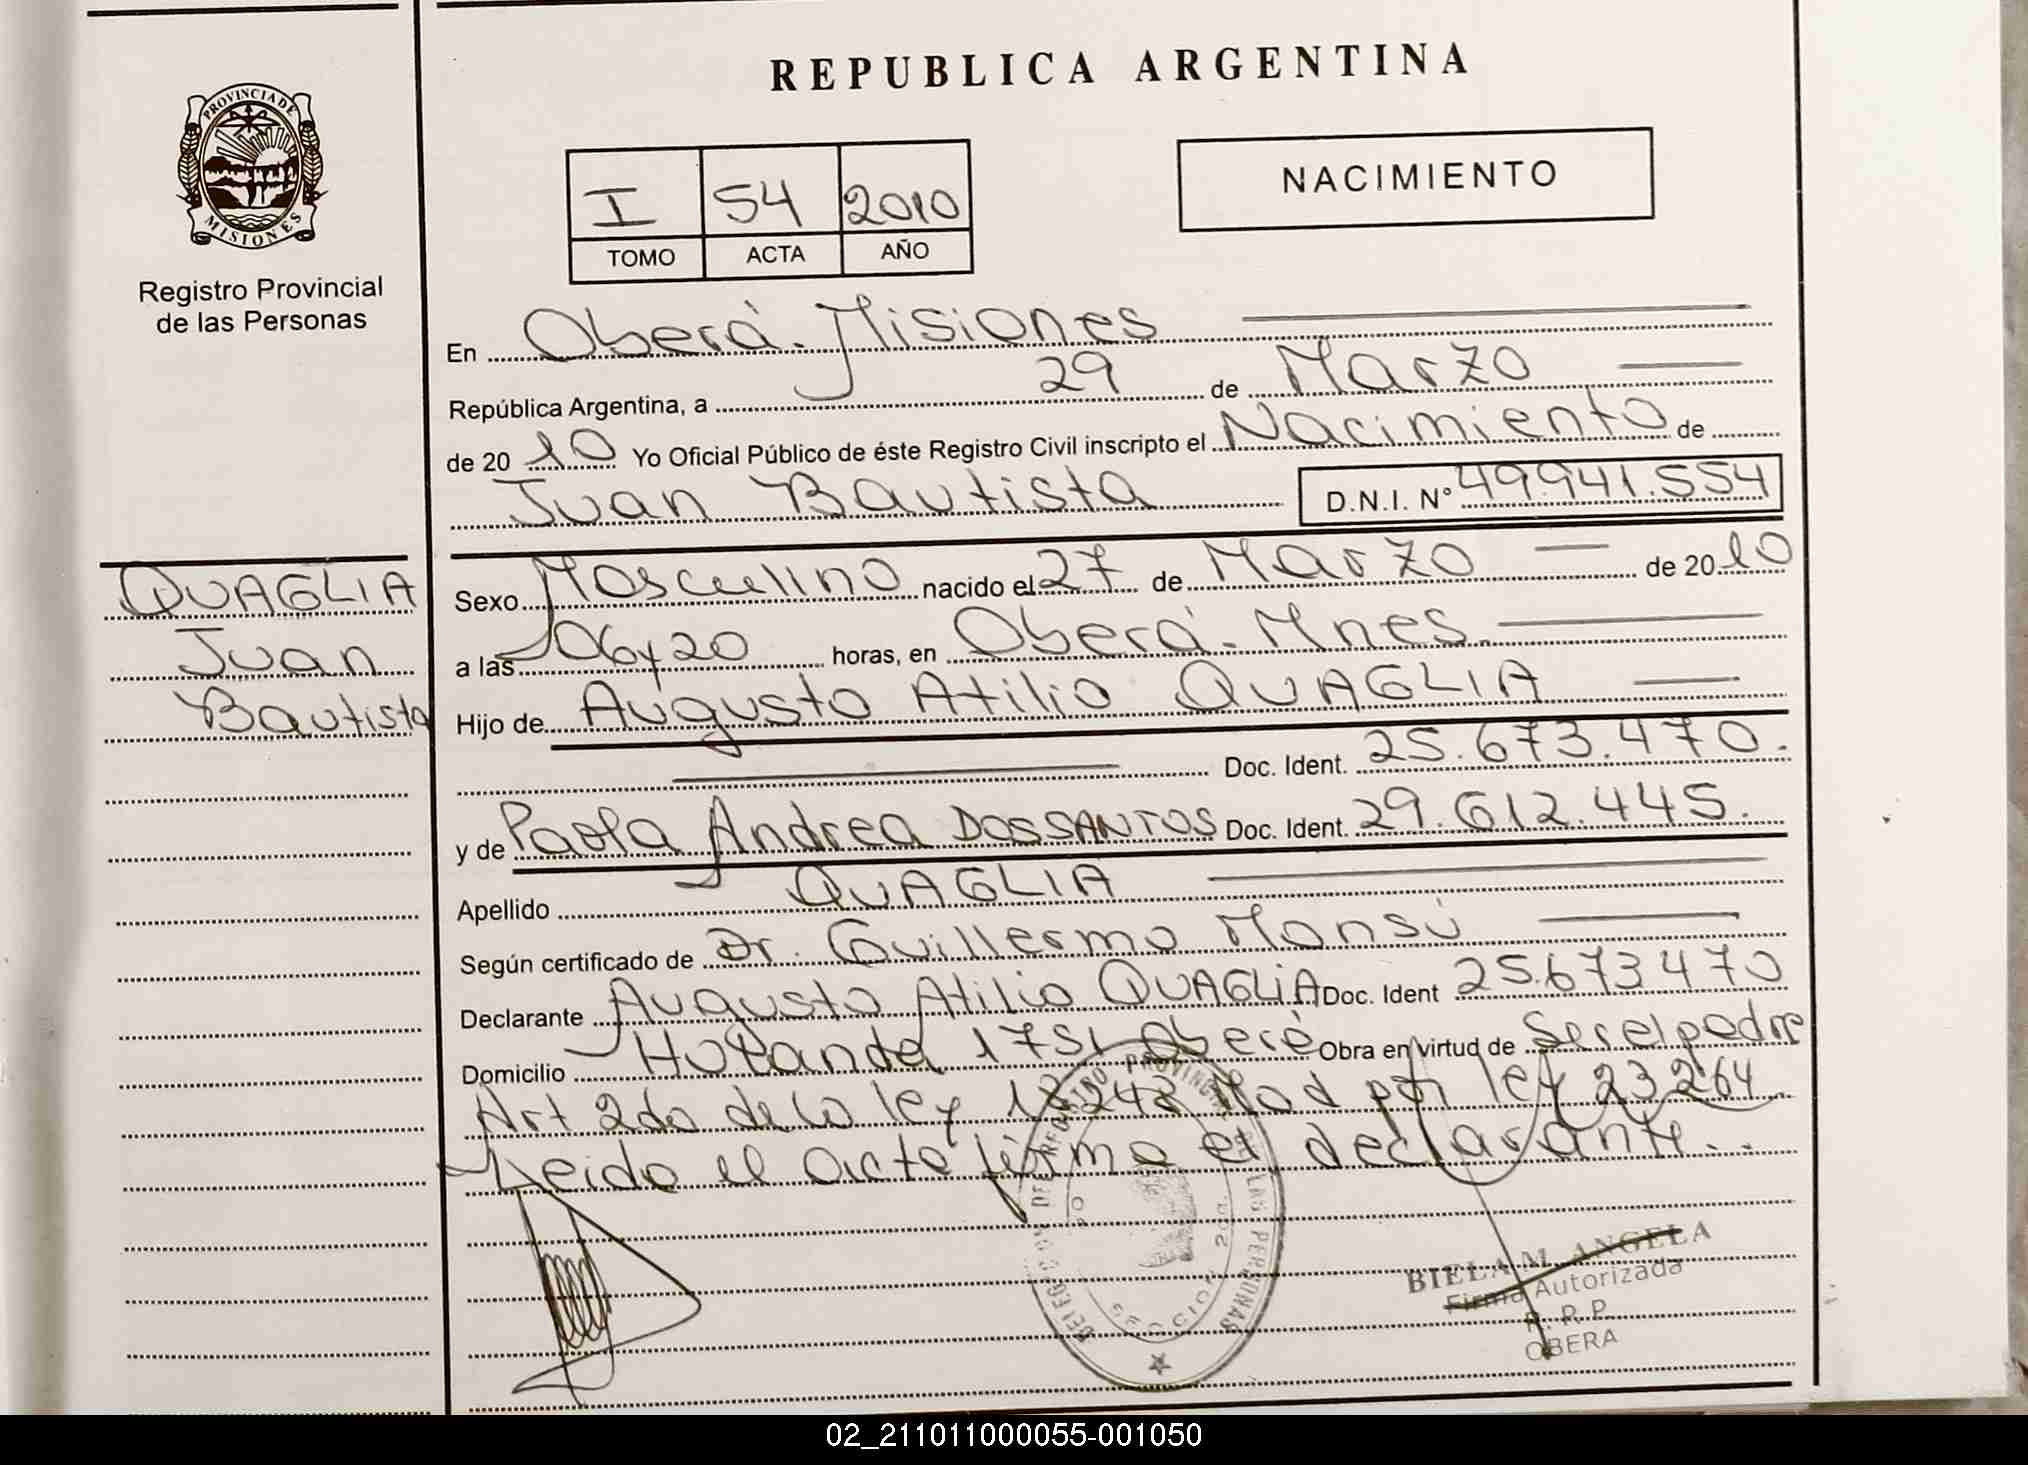 REPUBLICA ARGENTINA
PROVINCIA DE
MISIONES
Registro Provincial
de las Personas
I 54 2010
TOMO ACTA AÑO
NACIMIENTO
En Oberá. Misiones
República Argentina, a 29 de Marzo
de 2010 Yo Oficial Público de éste Registro Civil inscripto el Nacimiento de
Juan Bautista D.N.I. N° 49.941.554
QUAGLIA
Juan
Bautista
Sexo Masculino nacido el 27 de Marzo de 2010
a las 06y20 horas, en Oberá. Mnes
Hijo de Augusto Atilio QUAGLIA
Doc. Ident. 25.673.470.
y de Paola Andrea DOSSANTOS Doc. Ident. 29.612.445.
Apellido QUAGLIA
Según certificado de Dr. Guillermo Monsú
Declarante Augusto Atilio QUAGLIA Doc. Ident 25.673470
Domicilio Holanda 1751 Oberá Obra en virtud de Ser el padre
Art 2do de la ley 18248 Mod por ley 23264
Leido el acta firma el declarante..
DELEGACION DEL REGISTRO PROVINCIAL DE LAS PERSONAS
SECCION 2da.
BIELA M. ANGELA
Firma Autorizada
R. R. P.
OBERA
02_211011000055-001050